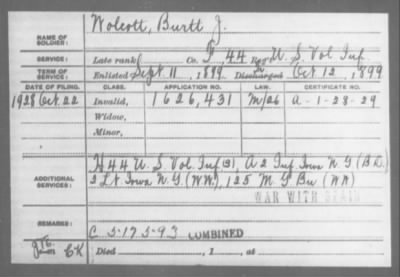 NAME OF SOLDIER: Wolcott, Burtt J.
SERVICE: Late rank Co. F, 44 Reg U. S. Vol Inf
TERM OF SERVICE: Enlisted Sept 11, 1899 Discharged Oct 12, 1899
DATE OF FILING. CLASS. APPLICATION NO. LAW. CERTIFICATE NO.
1928 Oct. 22 Invalid, 1626,431 A-1-28-29
Widow,
Minor,
H 44 U. S. Vol Inf A 2 Inf Iowa N G
ADDITIONAL SERVICES: 2 Lt Iowa N. G (WW), 125 M G Bn (WW)
WAR WITH SPAIN
REMARKS: C 5-17 5-93 COMBINED
Died , 1 , at